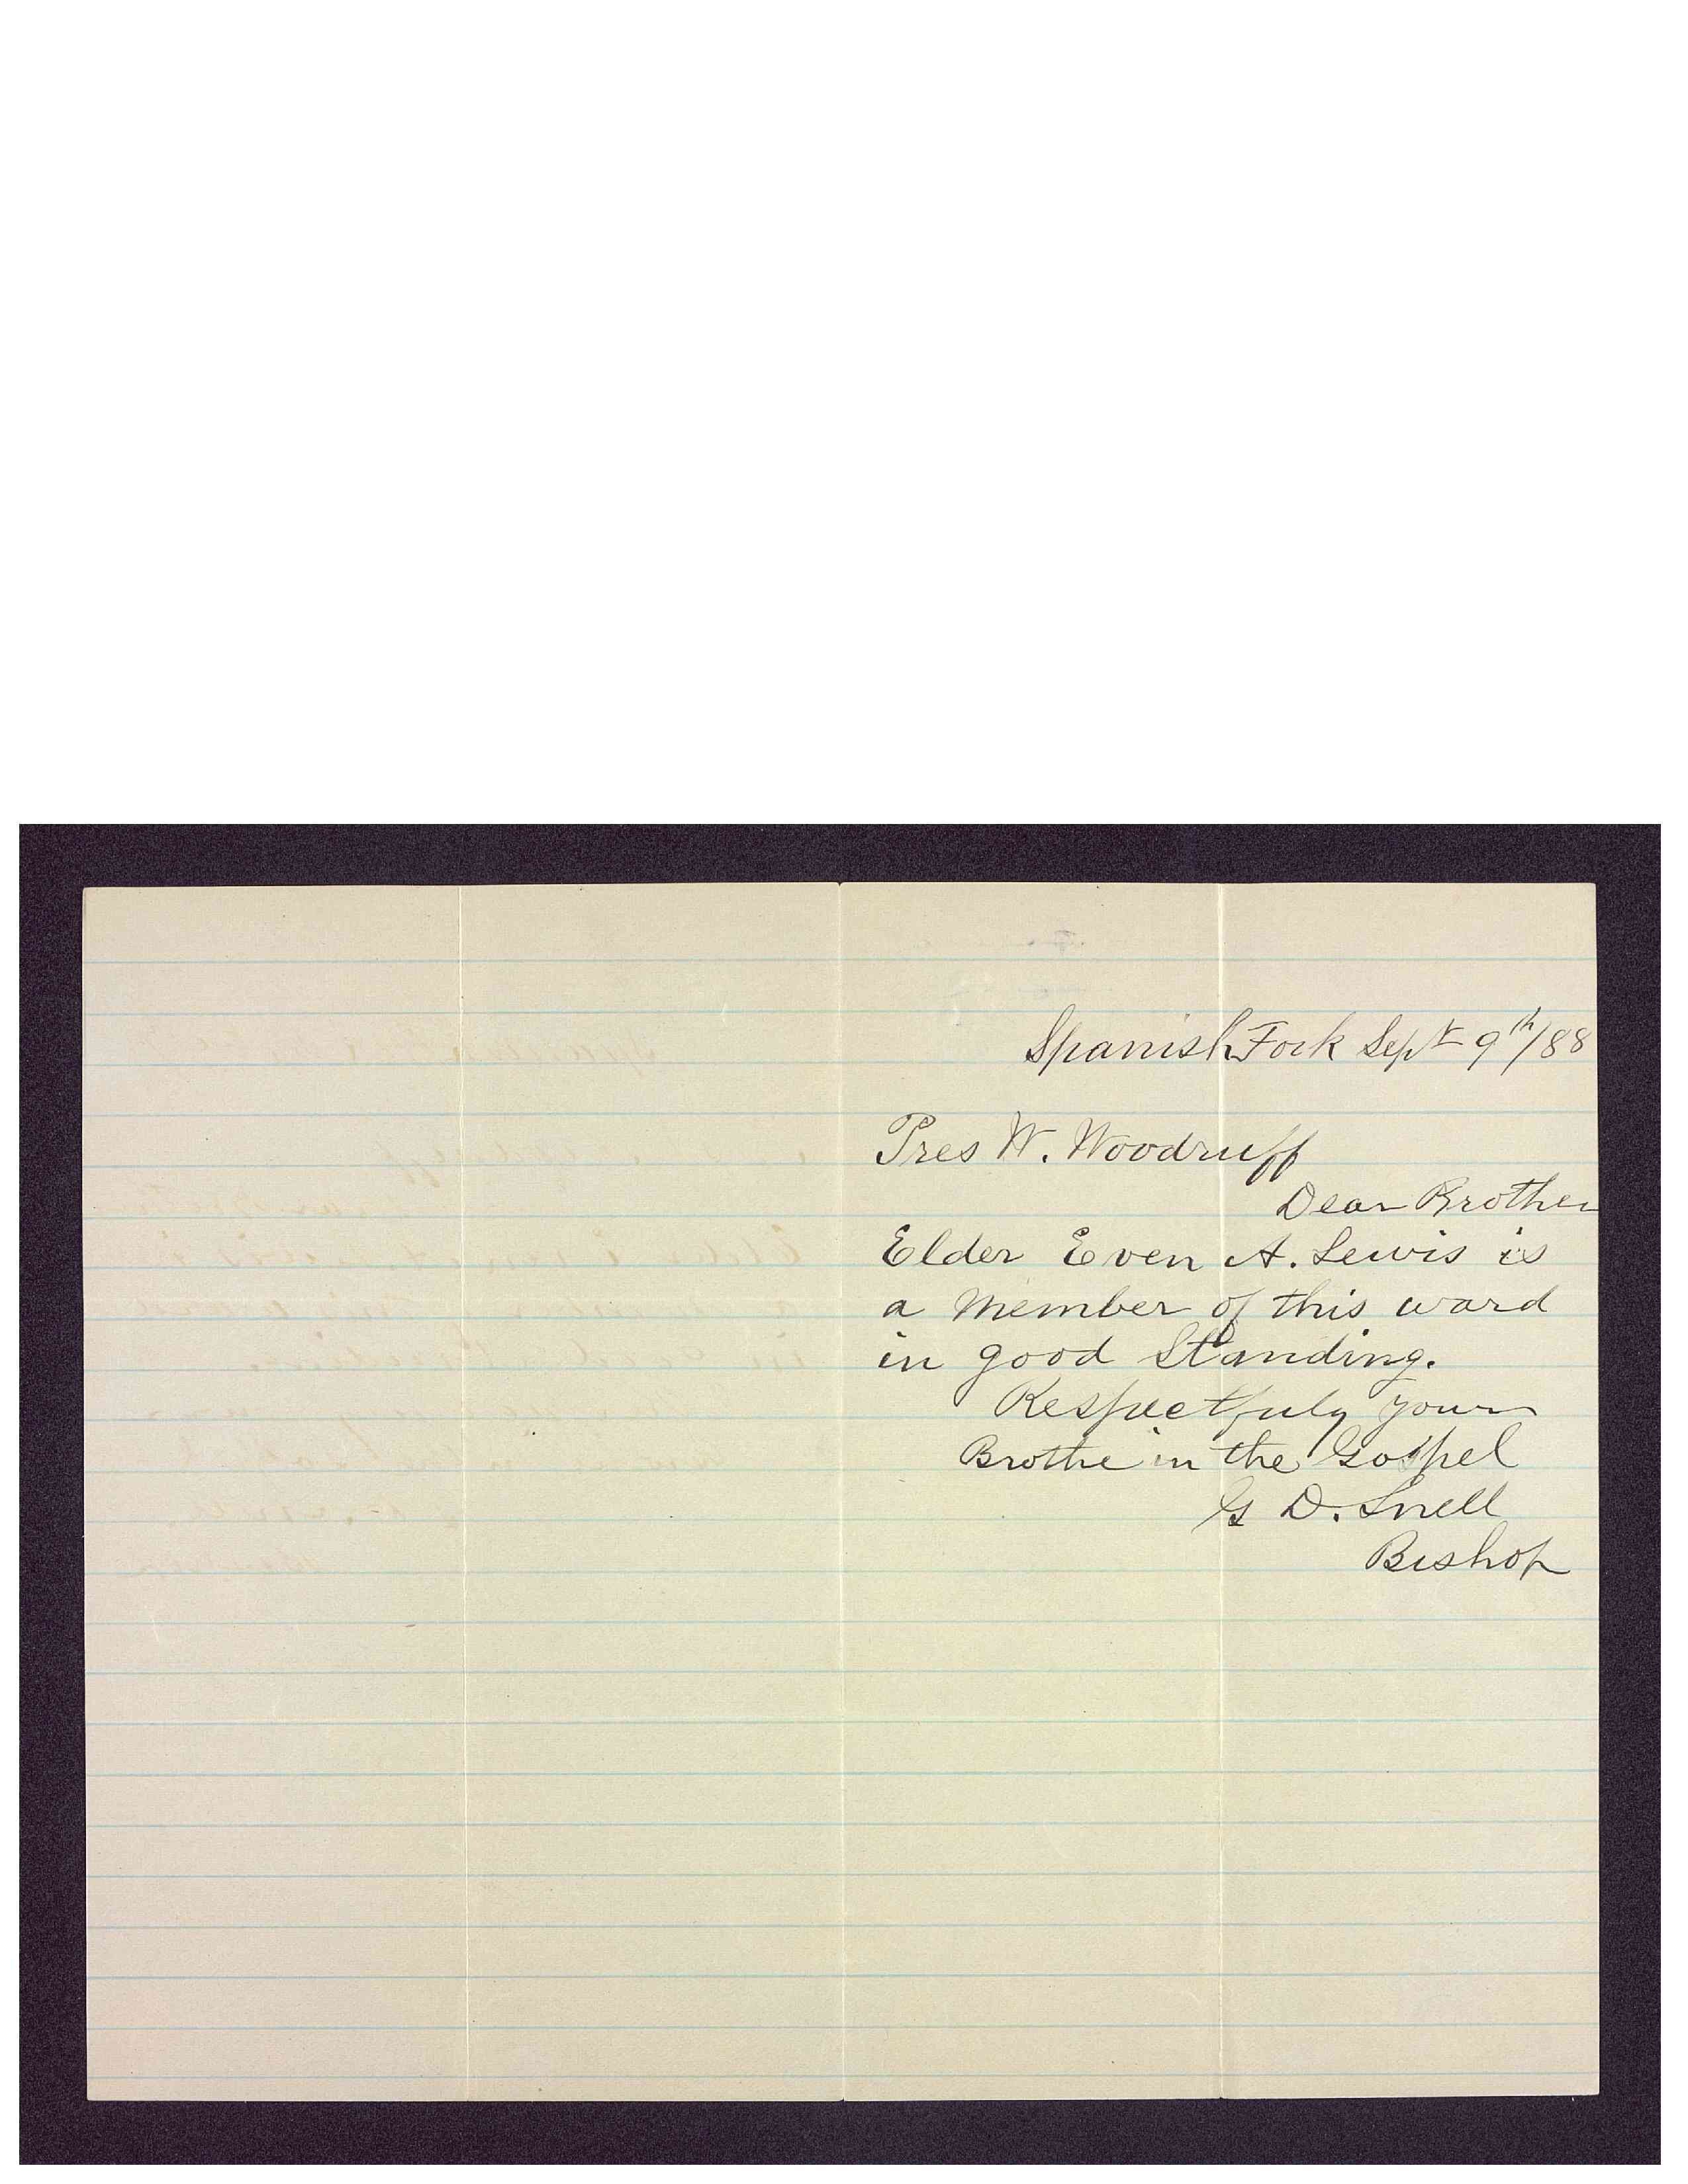 Spanish Fork Sept 9th/88
Pres W. Woodruff
Dear Brother
Elder Even A. Lewis is
a member of this ward
in good Standing.
Respectfuly yours
Brothe in the Gospel
G D. Snell
Bishop